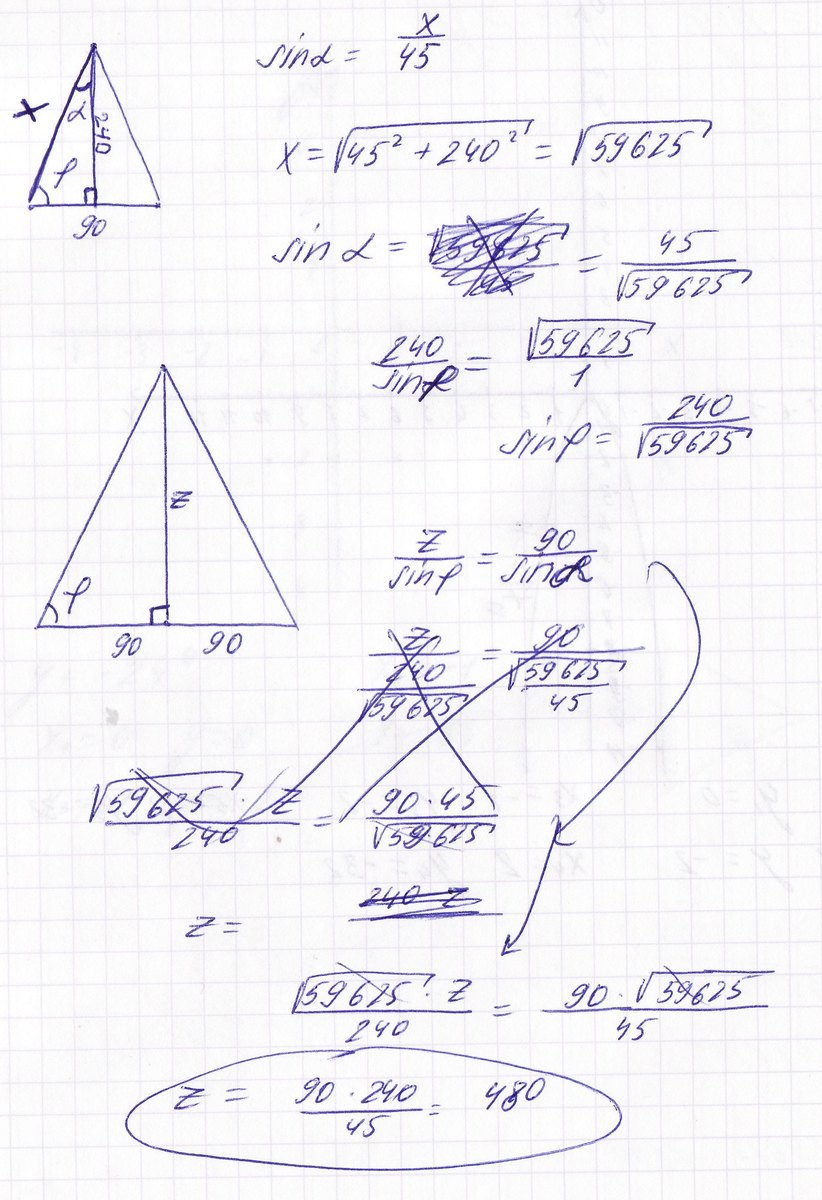 sin α = x/45
X
α
240
φ
90
X = √(45² + 240²) = √59625
sin α = √59625/45 = 45/√59625
240/sin φ = √59625/1
sin φ = 240/√59625
z
φ
90 90
z/sin φ = 90/sin α
z/(240/√59625) = 90/(√59625/45)
√59625 · z/240 = 90·45/√59625
240 z
z =
√59625 · z/240 = 90·√59625/45
z = 90·240/45 = 480